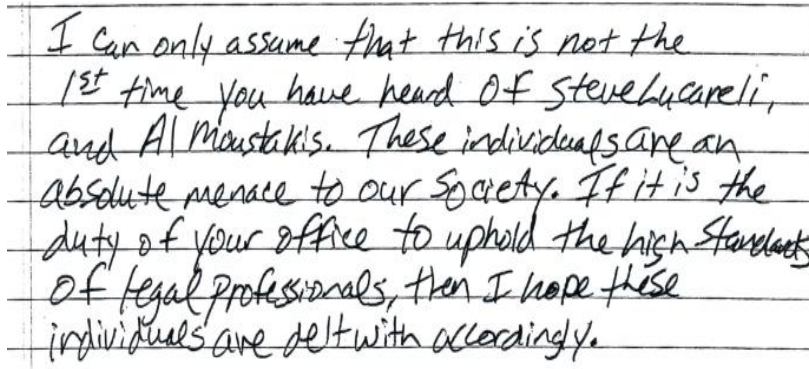 I can only assume that this is not the
1st time you have heard of Steve Lucareli,
and Al Moustakis. These individuals are an
absolute menace to our Society. If it is the
duty of your office to uphold the high Standards
Of legal professionals, then I hope these
individuals are delt with accordingly.